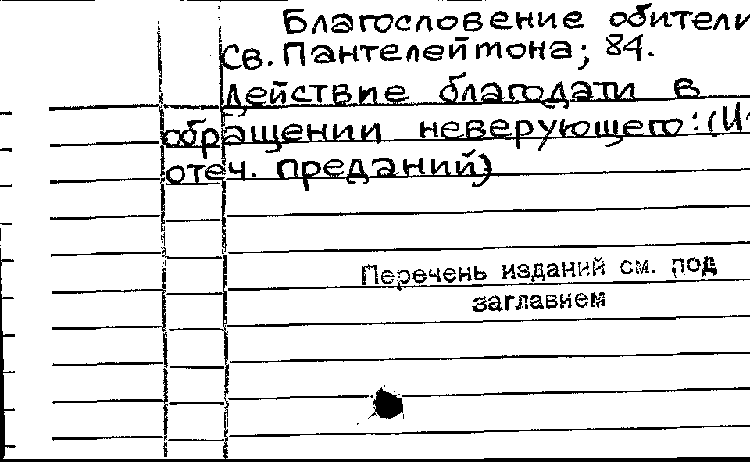 Благословение обители
Св. Пантелеймона; 84.
Действие благодати в
обращении неверующего: (Из
отеч. преданий)
Перечень изданий см. под
заглавием